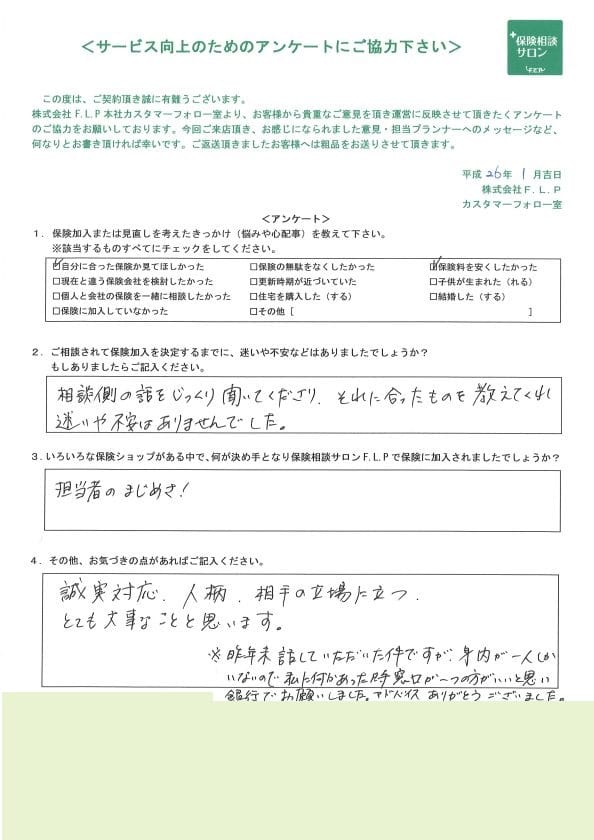 <サービス向上のためのアンケートにご協力下さい>
+保険相談
サロン
F.L.P
この度は、ご契約頂き誠に有難うございます。
株式会社F.L.P本社カスタマーフォロー室より、お客様から貴重なご意見を頂き運営に反映させて頂きたくアンケート
のご協力をお願いしております。今回ご来店頂き、お感じになられました意見・担当プランナーへのメッセージなど、
何なりとお書き頂ければ幸いです。ご返送頂きましたお客様へは粗品をお送りさせて頂きます。
平成26年1月吉日
株式会社F.L.P
カスタマーフォロー室
<アンケート>
1.保険加入または見直しを考えたきっかけ(悩みや心配事)を教えて下さい。
※該当するものすべてにチェックをしてください。
☑自分に合った保険か見てほしかった □保険の無駄をなくしたかった ☑保険料を安くしたかった
□現在と違う保険会社を検討したかった □更新時期が近づいていた □子供が生まれた(れる)
□個人と会社の保険を一緒に相談したかった □住宅を購入した(する) □結婚した(する)
□保険に加入していなかった □その他[ ]
2.ご相談されて保険加入を決定するまでに、迷いや不安などはありましたでしょうか?
もしありましたらご記入ください。
相談側の話をじっくり聞いてくださり、それに合ったものを教えてくれ
迷いや不安はありませんでした。
3.いろいろな保険ショップがある中で、何が決め手となり保険相談サロンF.L.Pで保険に加入されましたでしょうか?
担当者のまじめさ!
4.その他、お気づきの点があればご記入ください。
誠実対応、人柄、相手の立場に立つ、
とても大事なことと思います。
※昨年末話していただいた件ですが、身内が一人しか
いないので私に何かあった時窓口が一つの方がいいと思い
銀行でお願いしました。アドバイスありがとうございました。